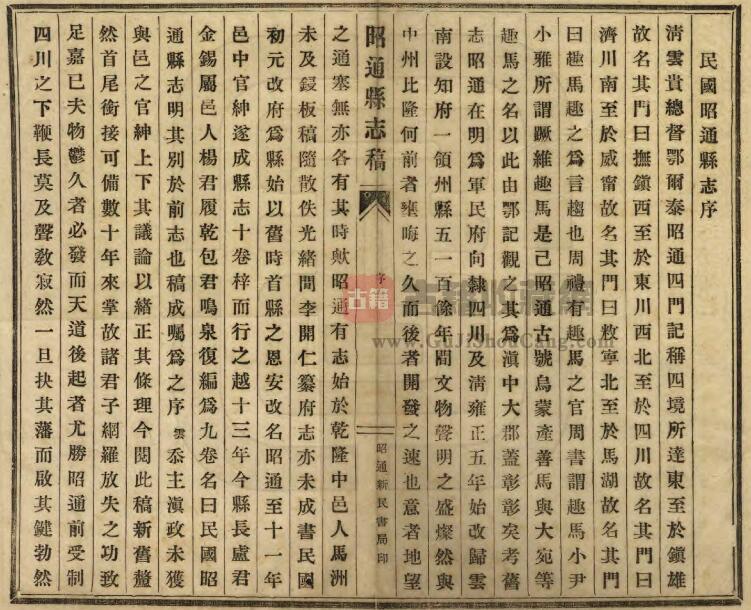 民國昭通縣志序
清雲貴總督鄂爾泰昭通四門記稱四境所達東至於鎭雄
故名其門曰撫鎭西至於東川西北至於四川故名其門曰
濟川南至於威甯故名其門曰敉寧北至於馬湖故名其門
曰趣馬趣之爲言趨也周禮有趣馬之官周書謂趣馬小尹
小雅所謂蹶維趣馬是已昭通古號烏蒙產善馬與大宛等
趣馬之名以此由鄂記觀之其爲滇中大郡蓋彰彰矣考舊
志昭通在明爲軍民府向隸四川及清雍正五年始改歸雲
南設知府一領州縣五一百餘年間文物聲明之盛燦然與
中州比隆何前者壅晦之久而後者開發之速也意者地望
昭通縣志稿
序
昭通新民書局印
之通塞無亦各有其時歟昭通有志始於乾隆中邑人馬洲
未及鋟板稿隨散佚光緒間李開仁纂府志亦未成書民國
初元改府爲縣始以舊時首縣之恩安改名昭通至十一年
邑中官紳遂成縣志十卷梓而行之越十三年今縣長盧君
金錫屬邑人楊君履乾包君鳴泉復編爲九卷名曰民國昭
通縣志明其別於前志也稿成囑爲之序雲忝主滇政未獲
與邑之官紳上下其議論以緒正其條理今閱此稿新舊釐
然首尾銜接可備數十年來掌故諸君子網羅放失之功致
足嘉已夫物鬱久者必發而天道後起者尤勝昭通前受制
四川之下鞭長莫及聲敎寂然一旦抉其藩而啟其鍵勃然
古籍收藏網
www.GuJiShouCang.com